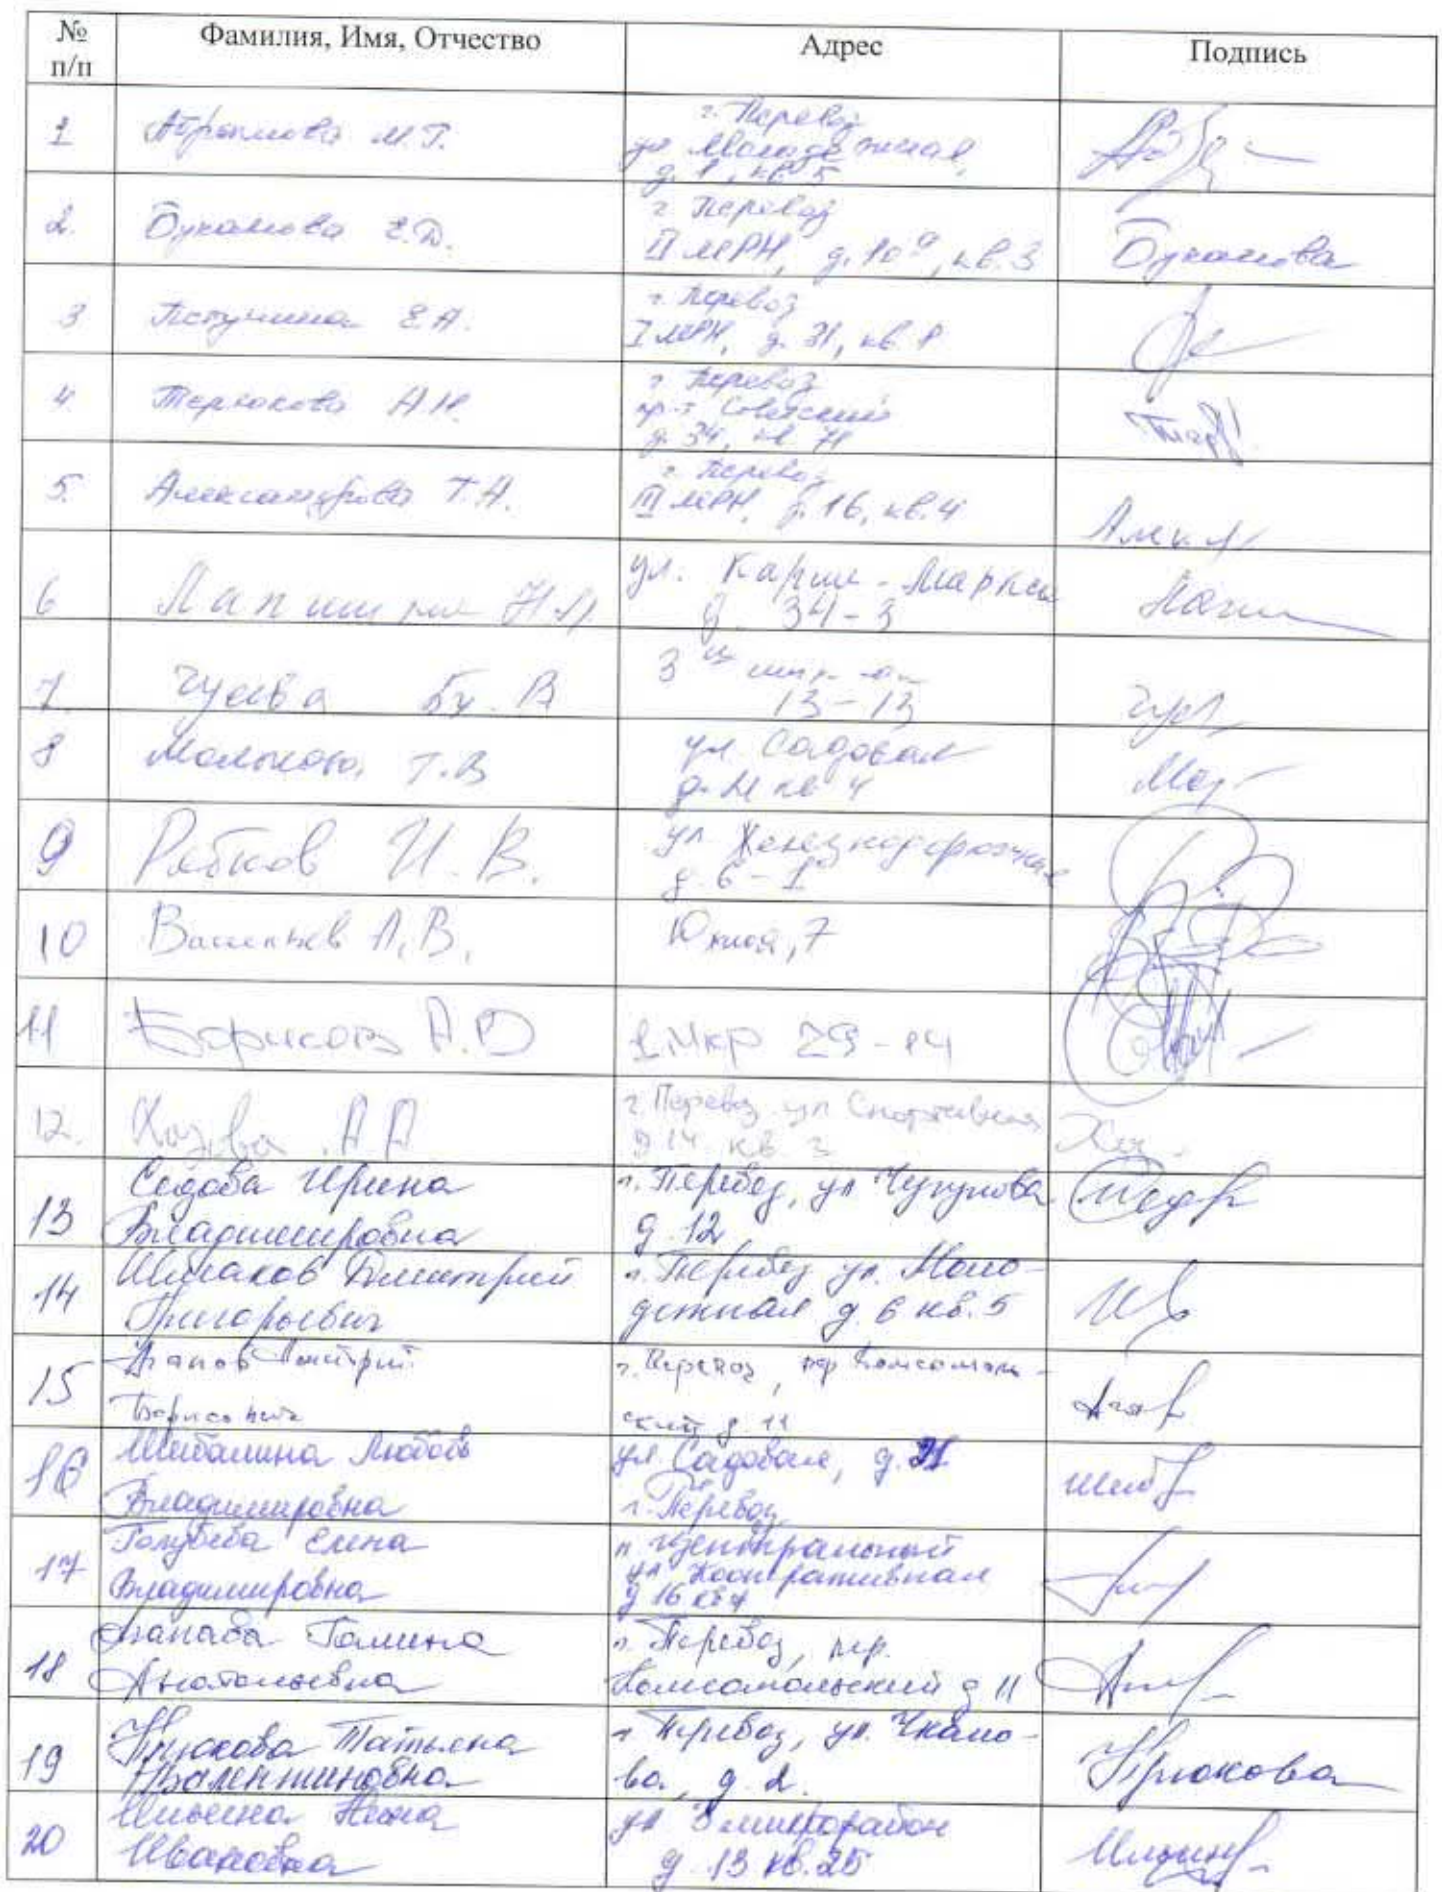 № п/п Фамилия, Имя, Отчество Адрес Подпись
1 Абрамова М.Г. г. Перевоз
ул Молодежная,
д. 1, кв 5
2. Буканова Е.Д. г Перевоз
II МРН, д. 10а, кв. 3 Буканова
3 Е.А. г. Перевоз
I МРН, д. 31, кв. 8
4. Терюкова А.Н. г Перевоз
пр-т Советский
д. 34, кв. 71
5. Александрова Т.А. г Перевоз
III МРН, д. 16, кв. 4
6 Лапшина Н.А. ул. Карла-Маркса
д. 34-3
7. В 3
13-13
8 Т.В ул. Садовая
д. кв 4
9 Рябков И.В. ул Железнодорожная
д. 6-1
10 Васильев А.В. Южная, 7
11 Борисов А.В 1 Мкр 29-14
12. А А г. Перевоз ул Спортивная
д 14 кв 3
13 Седова Ирина
Владимировна г. Перевоз, ул Чугунова
д. 12
14 Дмитрий
Григорьевич г. Перевоз ул. Моло-
дежная д 6 кв. 5
15 Агапов Дмитрий
Борисович г. Перевоз, пер Комсомоль-
ский д. 11
16 Шибалина Любовь
Владимировна ул. Садовая, д.
г. Перевоз
17 Голубева Елена
Владимировна п Центральный
ул Кооперативная
д 16 кв 4
18 Агапова Галина
Анатольевна г. Перевоз, пер.
Комсомольский д 11
19 Крюкова Татьяна
Валентиновна г. Перевоз, ул. Чкало-
ва, д. 2. Крюкова
20 Ильина Нина
Ивановна ул 3 микрорайон
д. 13 кв. 25